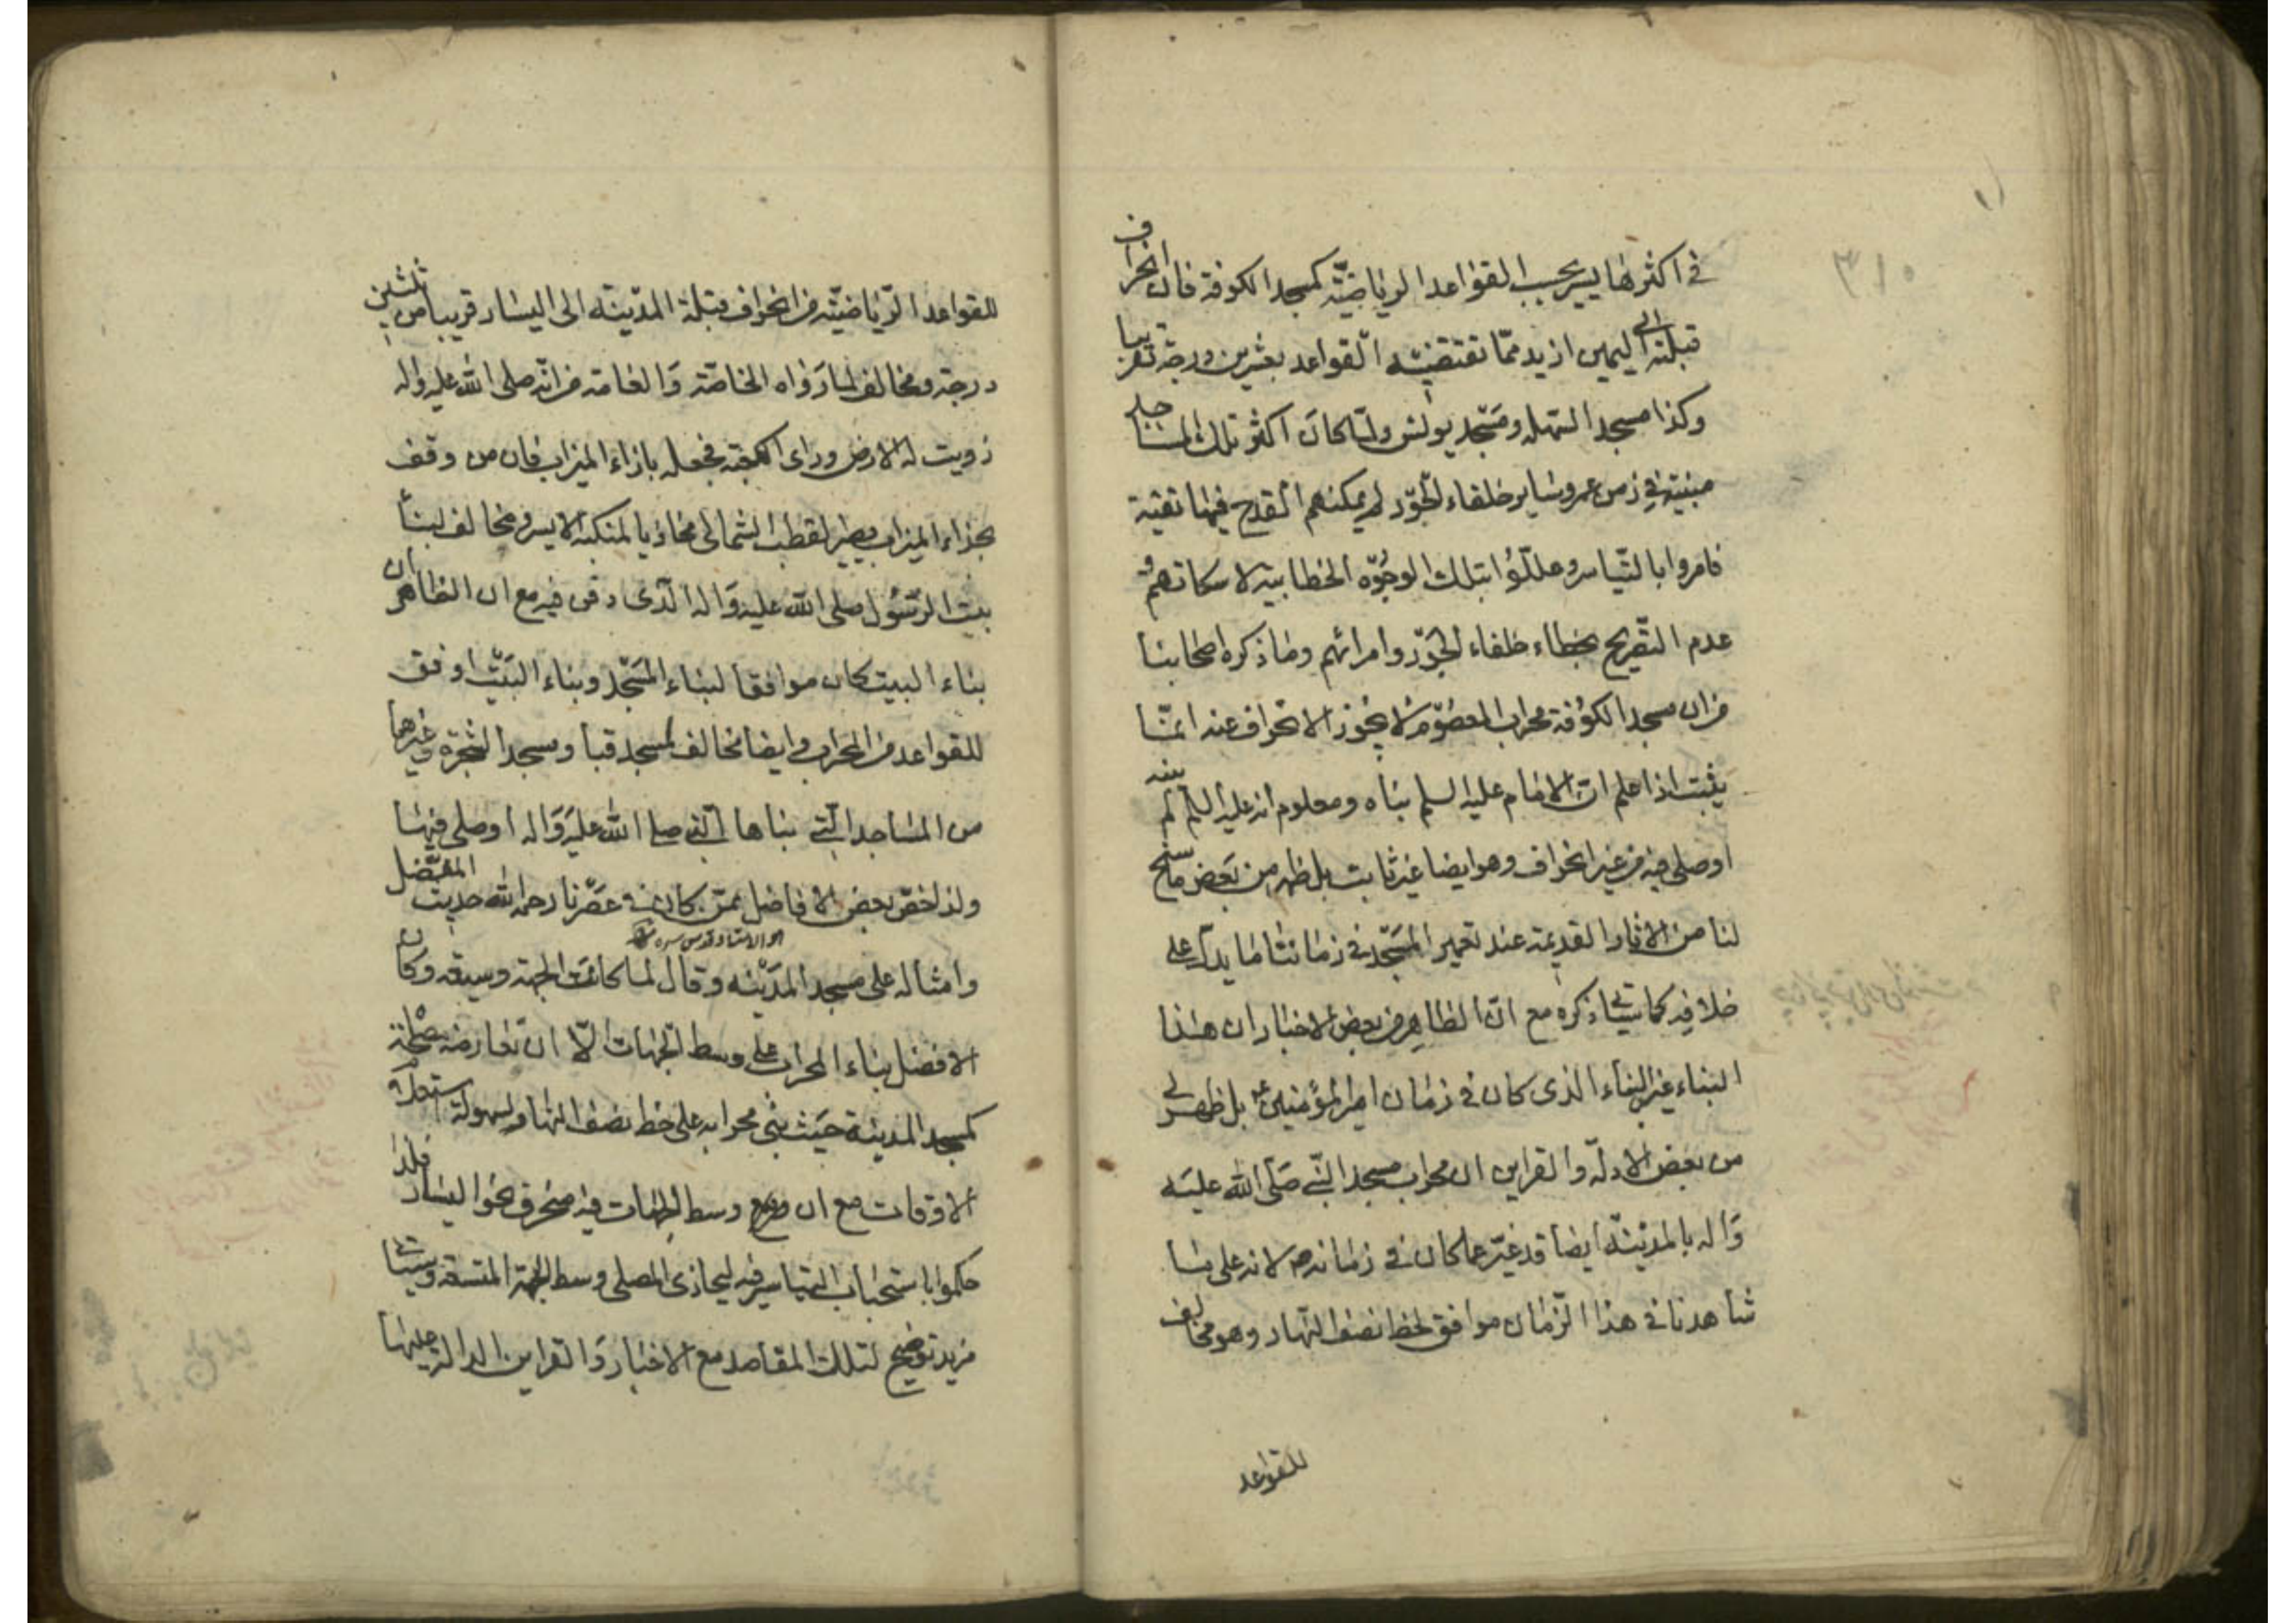 ٣١٥
في اكثرها يسير بحسب القواعد الرياضيّة كمسجد الكوفة فان انحراف
قبلته الى اليمين ازيد ممّا تقتضيه القواعد بعشرين درجة تقريبا
وكذا مسجد السّهله ومسجد يونس ولمّا كان اكثر تلك المساجد
مبنيّة في زمن عمر وساير خلفاء الجور لم يمكنهم القدح فيها تقيّة
فامروا بالتّياسر وعلّلوا بتلك الوجوه الخطابية لاسكاتهم و
عدم التّصريح بخطاء خلفاء الجور وامرائهم وما ذكره اصحابنا
من ان مسجد الكوفة محراب المعصوم لا يجوز الانحراف عنه انمّا
يثبت اذا علم انّ الامام عليه السلم بناه ومعلوم انه عليه السلم لم يبنه
او صلى فيه من غير انحراف وهو ايضا غير ثابت بل ظهر من بعض ما سنح
لنا من الاثار القديمة عند تعمير المسجد في زماننا ما يدلّ على
خلافه كما سيأتي ذكره مع انّ الظاهر من بعض الاخبار ان هذا
البناء غير البناء الذى كان في زمان امير المؤمنين ع بل ظهر لي
من بعض الادلّة والقراين ان محراب مسجد النّبي صلّى الله عليه
واله بالمدينة ايضا قد غيّر عما كان في زمانه ص لانه على ما
شاهدنا في هذا الزّمان موافق لخط نصف النّهار وهو مخالف
للقواعد
للقواعد الرّياضيّة من انحراف قبلة المدينه الى اليسار قريبا من ثلثين
درجة ومخالف لما رواه الخاصّة والعامة من انّه صلى الله عليه واله
زويت له الارض وراى الكعبة فجعله بازاء الميزاب فان من وقف
بحذاء الميزاب يصير القطب الشمالى محاذيا لمنكبه الايسر ومخالف لبناء
بيت الرّسول صلى الله عليه واله الّذى دفن فيه مع ان الظاهر ان
بناء البيت كان موافقا لبناء المسجد وبناء البيت اوفق
للقواعد من المحراب وايضا مخالف لمسجد قبا ومسجد الشجرة وغيرهما
من المساجد الّتي بناها النّبي صلى الله عليه واله او صلى فيها
ولذا خصّ بعض الافاضل ممّن كان في عصرنا رحمه الله حديث المفضل
هو الاستاد قدس سره
وامثاله على مسجد المدينه وقال لما كانت الجهة وسيعه وكان
الافضل بناء المحراب على وسط الجهات الّا ان تعارضه مصلحة
كمسجد المدينة حيث بني محرابه على خط نصف النهار لسهولة استعلام
الاوقات مع ان وسط الجهات فيه منحرف نحو اليسار فلذا
حكموا باستحباب التياسر فيه ليحاذى المصلى وسط الجهة المتسعة وسيأتي
مزيد توضيح لتلك المقاصد مع الاخبار والقراين الدالة عليها